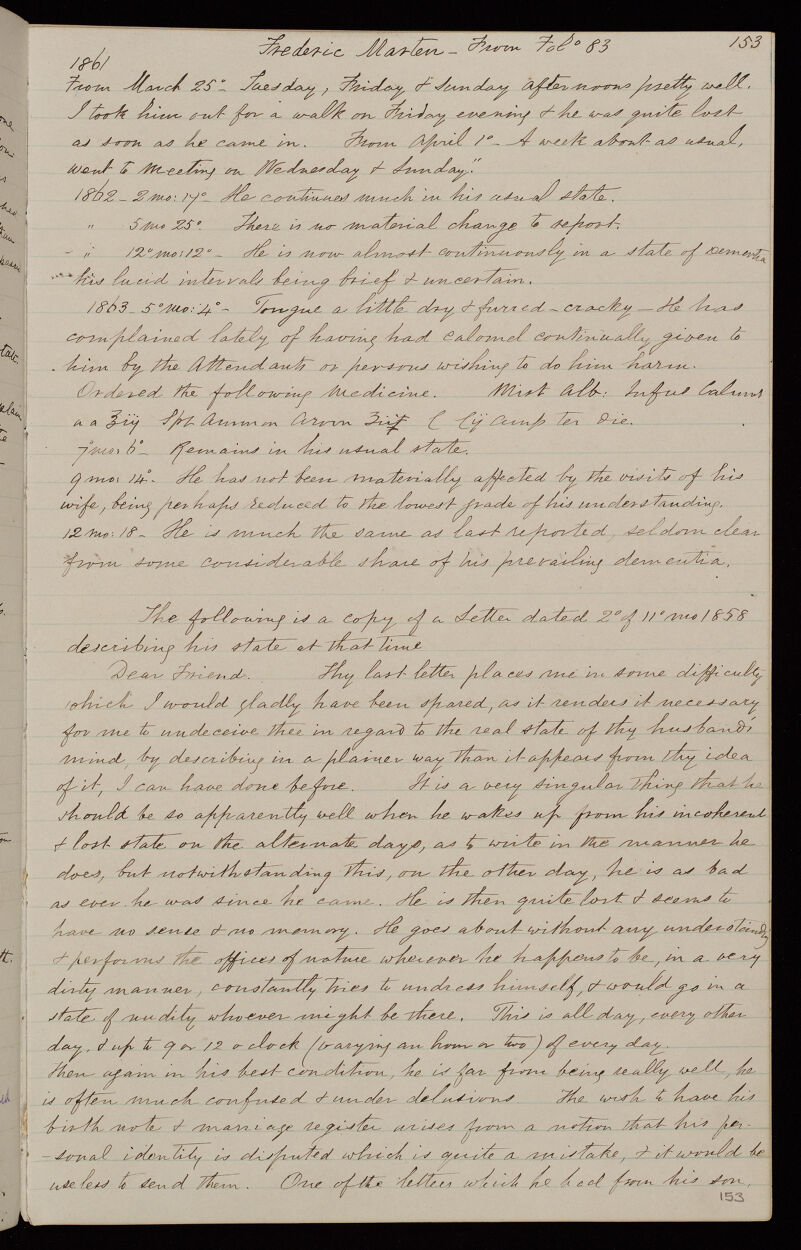 153
Frederic Marten - From Folo 83
1861
From March 25o - Tuesday, Friday & Sunday afternoons pretty well.
I took him out for a walk on Friday evening & he was quite lost
as soon as he came in. From April 1o - A week about as usual,
went to Meeting on Wednesday & Sunday."
1862 - 2 mo: 17o He continues much in his usual state.
" 5 mo 25o. There is no material change to report.
- " 12o mo: 12o - He is now almost continuously in a state of dementia
his lucid intervals being brief & uncertain.
1863 - 5o mo: 4o - Tongue a little dry & furred - cracky - He has
complained lately of having had Calomel continually given to
him by the Attendants or persons wishing to do him harm.
Ordered the following Medicine. Mist Alb: Infus Calumb
a a ℥iij Spt Ammon Arom ʒiiſs Cij Amp ter die.
7o mo: 6o - Remains in his usual state.
9 mo: 14o. He has not been materially affected by the visits of his
wife, being perhaps reduced to the lowest grade of his understanding.
12 mo: 18 - He is much the same as last reported, seldom clear
from some considerable share of his prevailing dementia.
The following is a copy of a Letter dated 2o of 11o mo 1858
describing his state at that time
Dear Friend. Thy last letter places me in some difficulty
which I would gladly have been spared, as it renders it necessary
for me to undeceive thee in regard to the real state of thy husband's
mind, by describing in a plainer way than it appears from thy idea
of it, I can have done before. It is a very singular thing that he
should be so apparently well when he wakes up from his incoherent
& lost state on the alternate days, as to write in the manner he
does, but notwithstanding this, on the other day, he is as bad
as ever he was since he came. He is then quite lost & seems to
have no sense & no memory. He goes about without any understanding
& performs the offices of nature wherever he happens to be, in a very
dirty manner, constantly tries to undress himself, & would go in a
state of nudity whoever might be there. This is all day, every other
day, & up to 9 or 12 o clock (varying an hour or two) of every day.
Then again in his best condition, he is far from being really well, he
is often much confused & under delusions The wish to have his
birth note & marriage register arises from a notion that his per-
-sonal identity is disputed which is quite a mistake, & it would be
useless to send them. One of the letters which he had from his son,
153